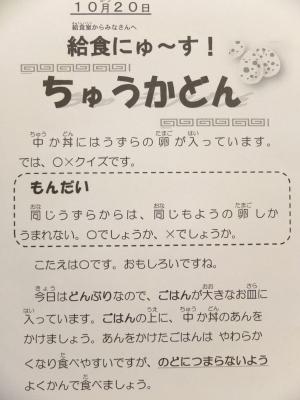 10月20日
給食室からみなさんへ
給食にゅ～す！
ちゅうかどん
中か丼にはうずらの卵が入っています。
では、〇×クイズです。
もんだい
同じうずらからは、同じもようの卵しか
うまれない。〇でしょうか、×でしょうか。
こたえは〇です。おもしろいですね。
今日はどんぶりなので、ごはんが大きなお皿に
入っています。ごはんの上に、中か丼のあんを
かけましょう。あんをかけたごはんは やわらか
くなり食べやすいですが、のどにつまらないよう
よくかんで食べましょう。